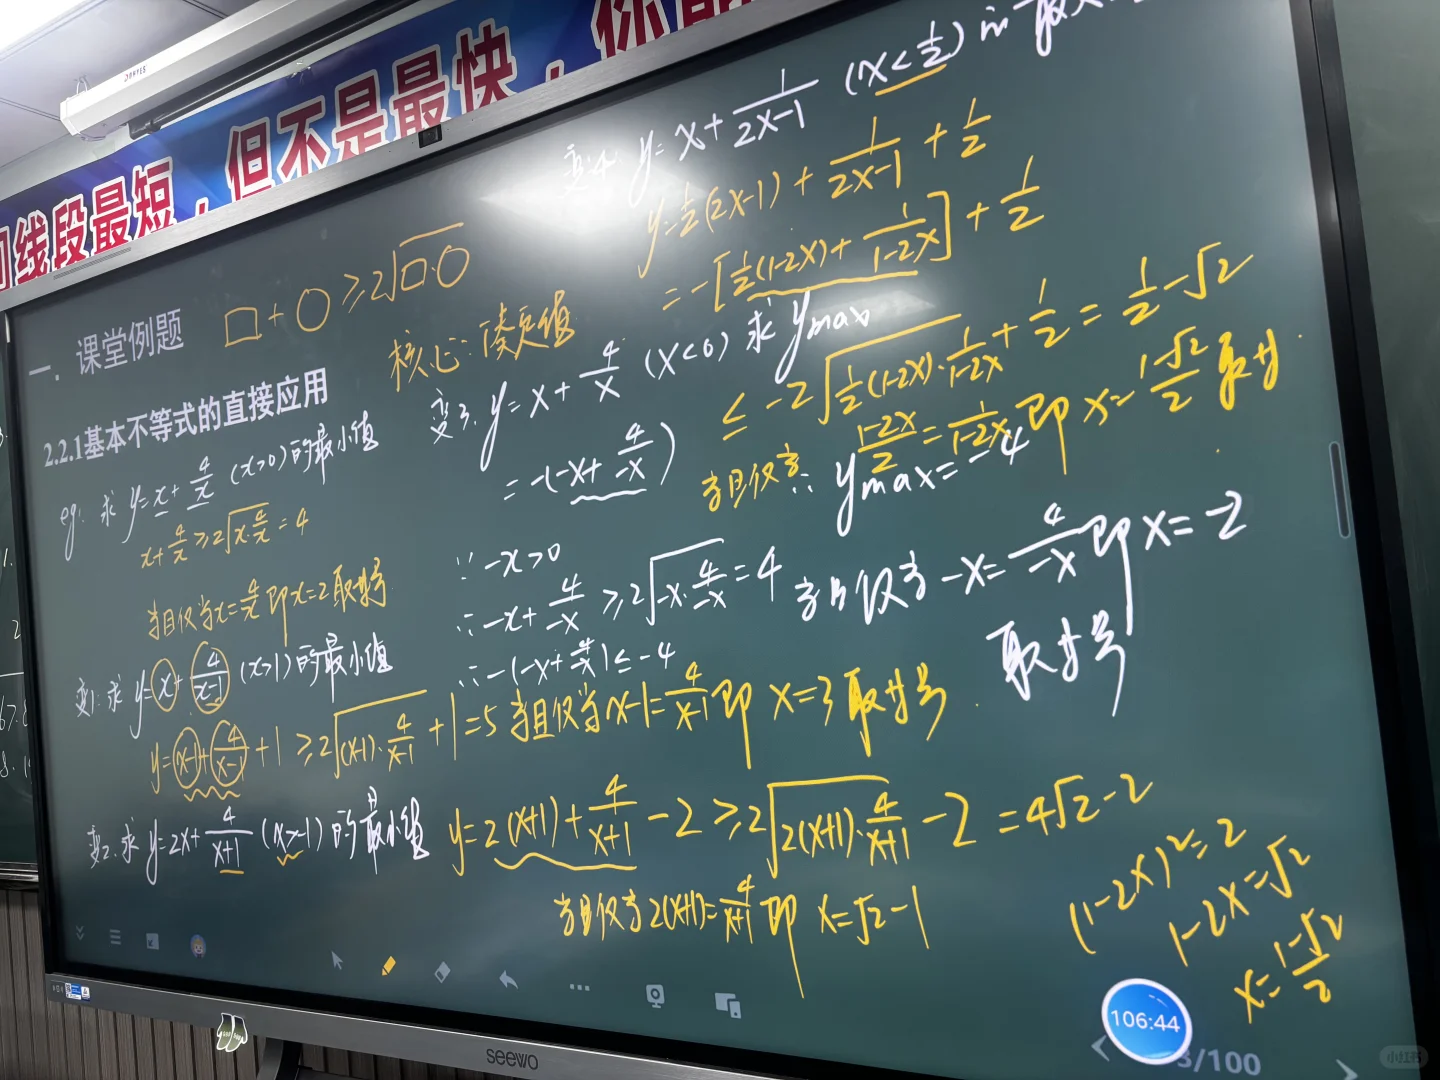 间线段最短，但不是最快，你
DONVES
一. 课堂例题
□+○≥2√(□·○)
核心：凑定值
2.2.1基本不等式的直接应用
eg: 求 y=x+4/x (x>0)的最小值
x+4/x≥2√(x·4/x)=4
当且仅当x=4/x即x=2取等号
变1. 求 y=x+4/(x-1) (x>1)的最小值
y=(x-1)+4/(x-1)+1≥2√((x-1)·4/(x-1))+1=5 当且仅当x-1=4/(x-1)即 x=3取等号.
变2. 求 y=2x+4/(x+1) (x>-1)的最小值
y=2(x+1)+4/(x+1)-2≥2√(2(x+1)·4/(x+1))-2=4√2-2
当且仅当2(x+1)=4/(x+1)即 x=√2-1
变3. y=x+4/x (x<0) 求 ymax
=-(-x+4/-x)
∵-x>0
∴-x+4/-x≥2√(-x·4/-x)=4
∴-(-x+4/-x)≤-4
∴ymax=-4
当且仅当-x=4/-x即x=-2
取等号
变4. y=x+1/(2x-1) (x<1/2)的最
y=1/2(2x-1)+1/(2x-1)+1/2
=-[1/2(1-2x)+1/(1-2x)]+1/2
≤-2√(1/2(1-2x)·1/(1-2x))+1/2=1/2-√2
当且仅当(1-2x)/2=1/(1-2x)即x=(1-√2)/2取等.
(1-2x)²=2
1-2x=√2
x=(1-√2)/2
106:44
3/100
seewo
小红书